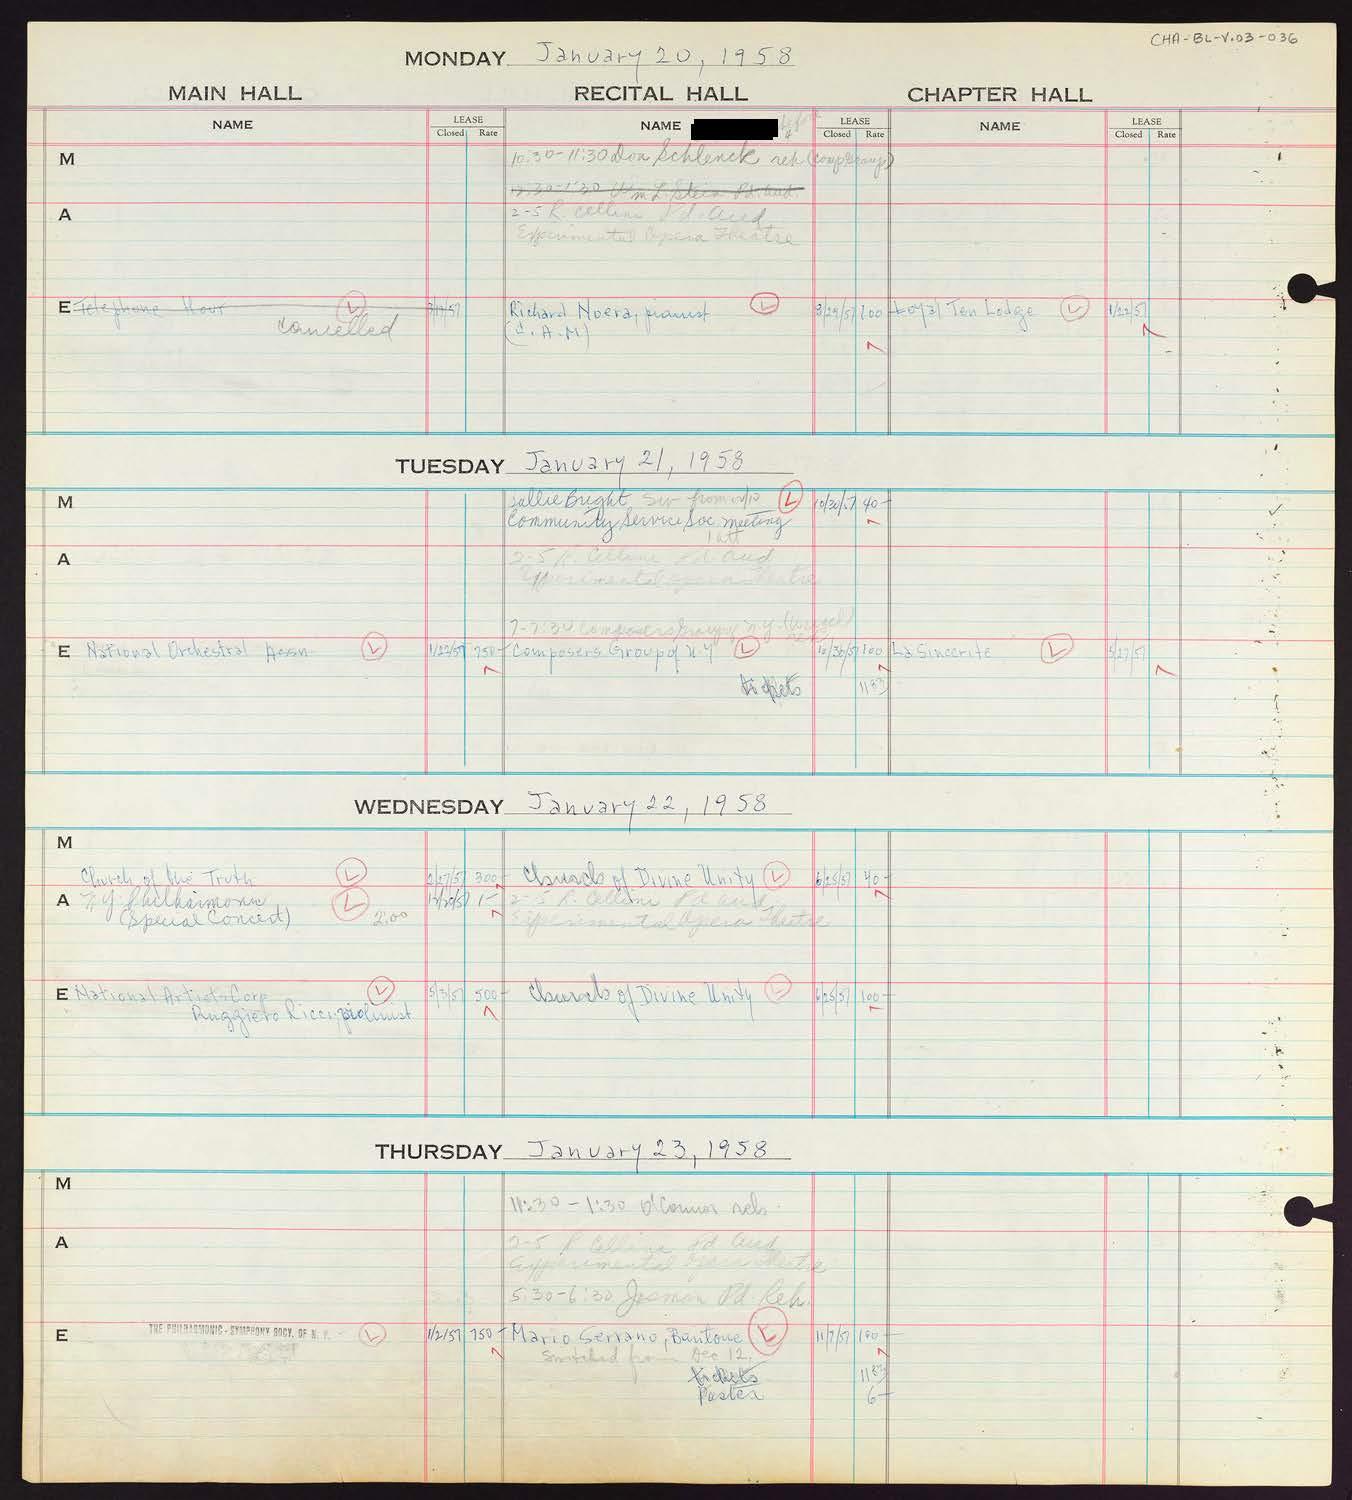 CHA-BL-V.03-036
MONDAY January 20, 1958
MAIN HALL RECITAL HALL CHAPTER HALL
NAME LEASE Closed Rate NAME before LEASE Closed Rate NAME LEASE Closed Rate
M 10:30-11:30 Don Schlenck reh
12:30-1:30 Wm L Stein Pd. aud.
A 2-5 R. Cellini Pd. aud
Experimental Opera Theatre
E Telephone Hour L 3/19/57 Richard Noera, pianist L 3/29/57 100 Loyal Ten Lodge L 1/22/57
cancelled (C.A.M)
TUESDAY January 21, 1958
M Sallie Bright Sw from L 10/30/57 40-
Community Service Soc. meeting
A 2-5 R. Cellini Pd. aud
Experimental Opera Theatre
7-7:30 Composers Group N.Y.
E National Orchestral Assn L 1/22/57 750- Composers Group of N-Y L 10/30/57 100 La Sincerite L 5/27/57
tickets 11 83
WEDNESDAY January 22, 1958
M
Church of the Truth L 2/27/57 300- Church of Divine Unity L 6/25/57 40-
A N.Y. Philharmonic L 12/20/57 1- 2-5 R. Cellini Pd aud
(Special Concert) 2:00 Experimental Opera Theatre
E National Artists Corp L 5/3/57 500- Church of Divine Unity L 6/25/57 100-
Ruggiero Ricci, violinist
THURSDAY January 23, 1958
M
11:30-1:30 O'Connor reh.
A 2-5 R Cellini Pd aud
Experimental Opera Theatre
5:30-6:30 Josman Pd. Reh.
E THE PHILHARMONIC-SYMPHONY SOCY. OF N. Y. L 1/2/57 750- Mario Serrano, Baritone L 11/7/57 100-
Switched from Dec 12.
tickets 11 83
Poster 6-